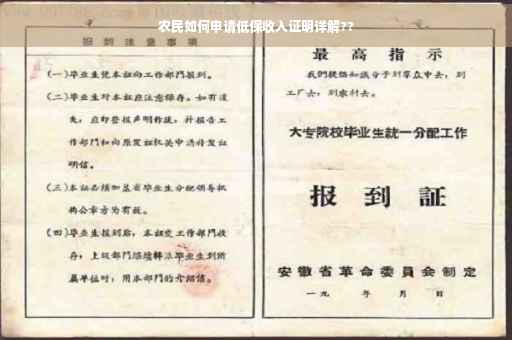 农民如何申请低保收入证明详解??
报到注意事项
(一)毕业生凭本证向工作部门报到。
(二)毕业生对本证应注意保存。如有遗
失，应即登报声明作废，并报告工
作部门和向原发证机关申请补发证
明信。
(三)本证必须加盖省毕业生分配领导机
构公章方为有效。
(四)毕业生报到后，本证交工作部门收
存；上级部门继续转派毕业生到所
属单位时，用本部门的介绍信。
最高指示
我们提倡知识分子到群众中去，到
工厂去，到农村去。
大专院校毕业生統一分配工作
报到証
安徽省革命委員会制定
一九 年 月 日